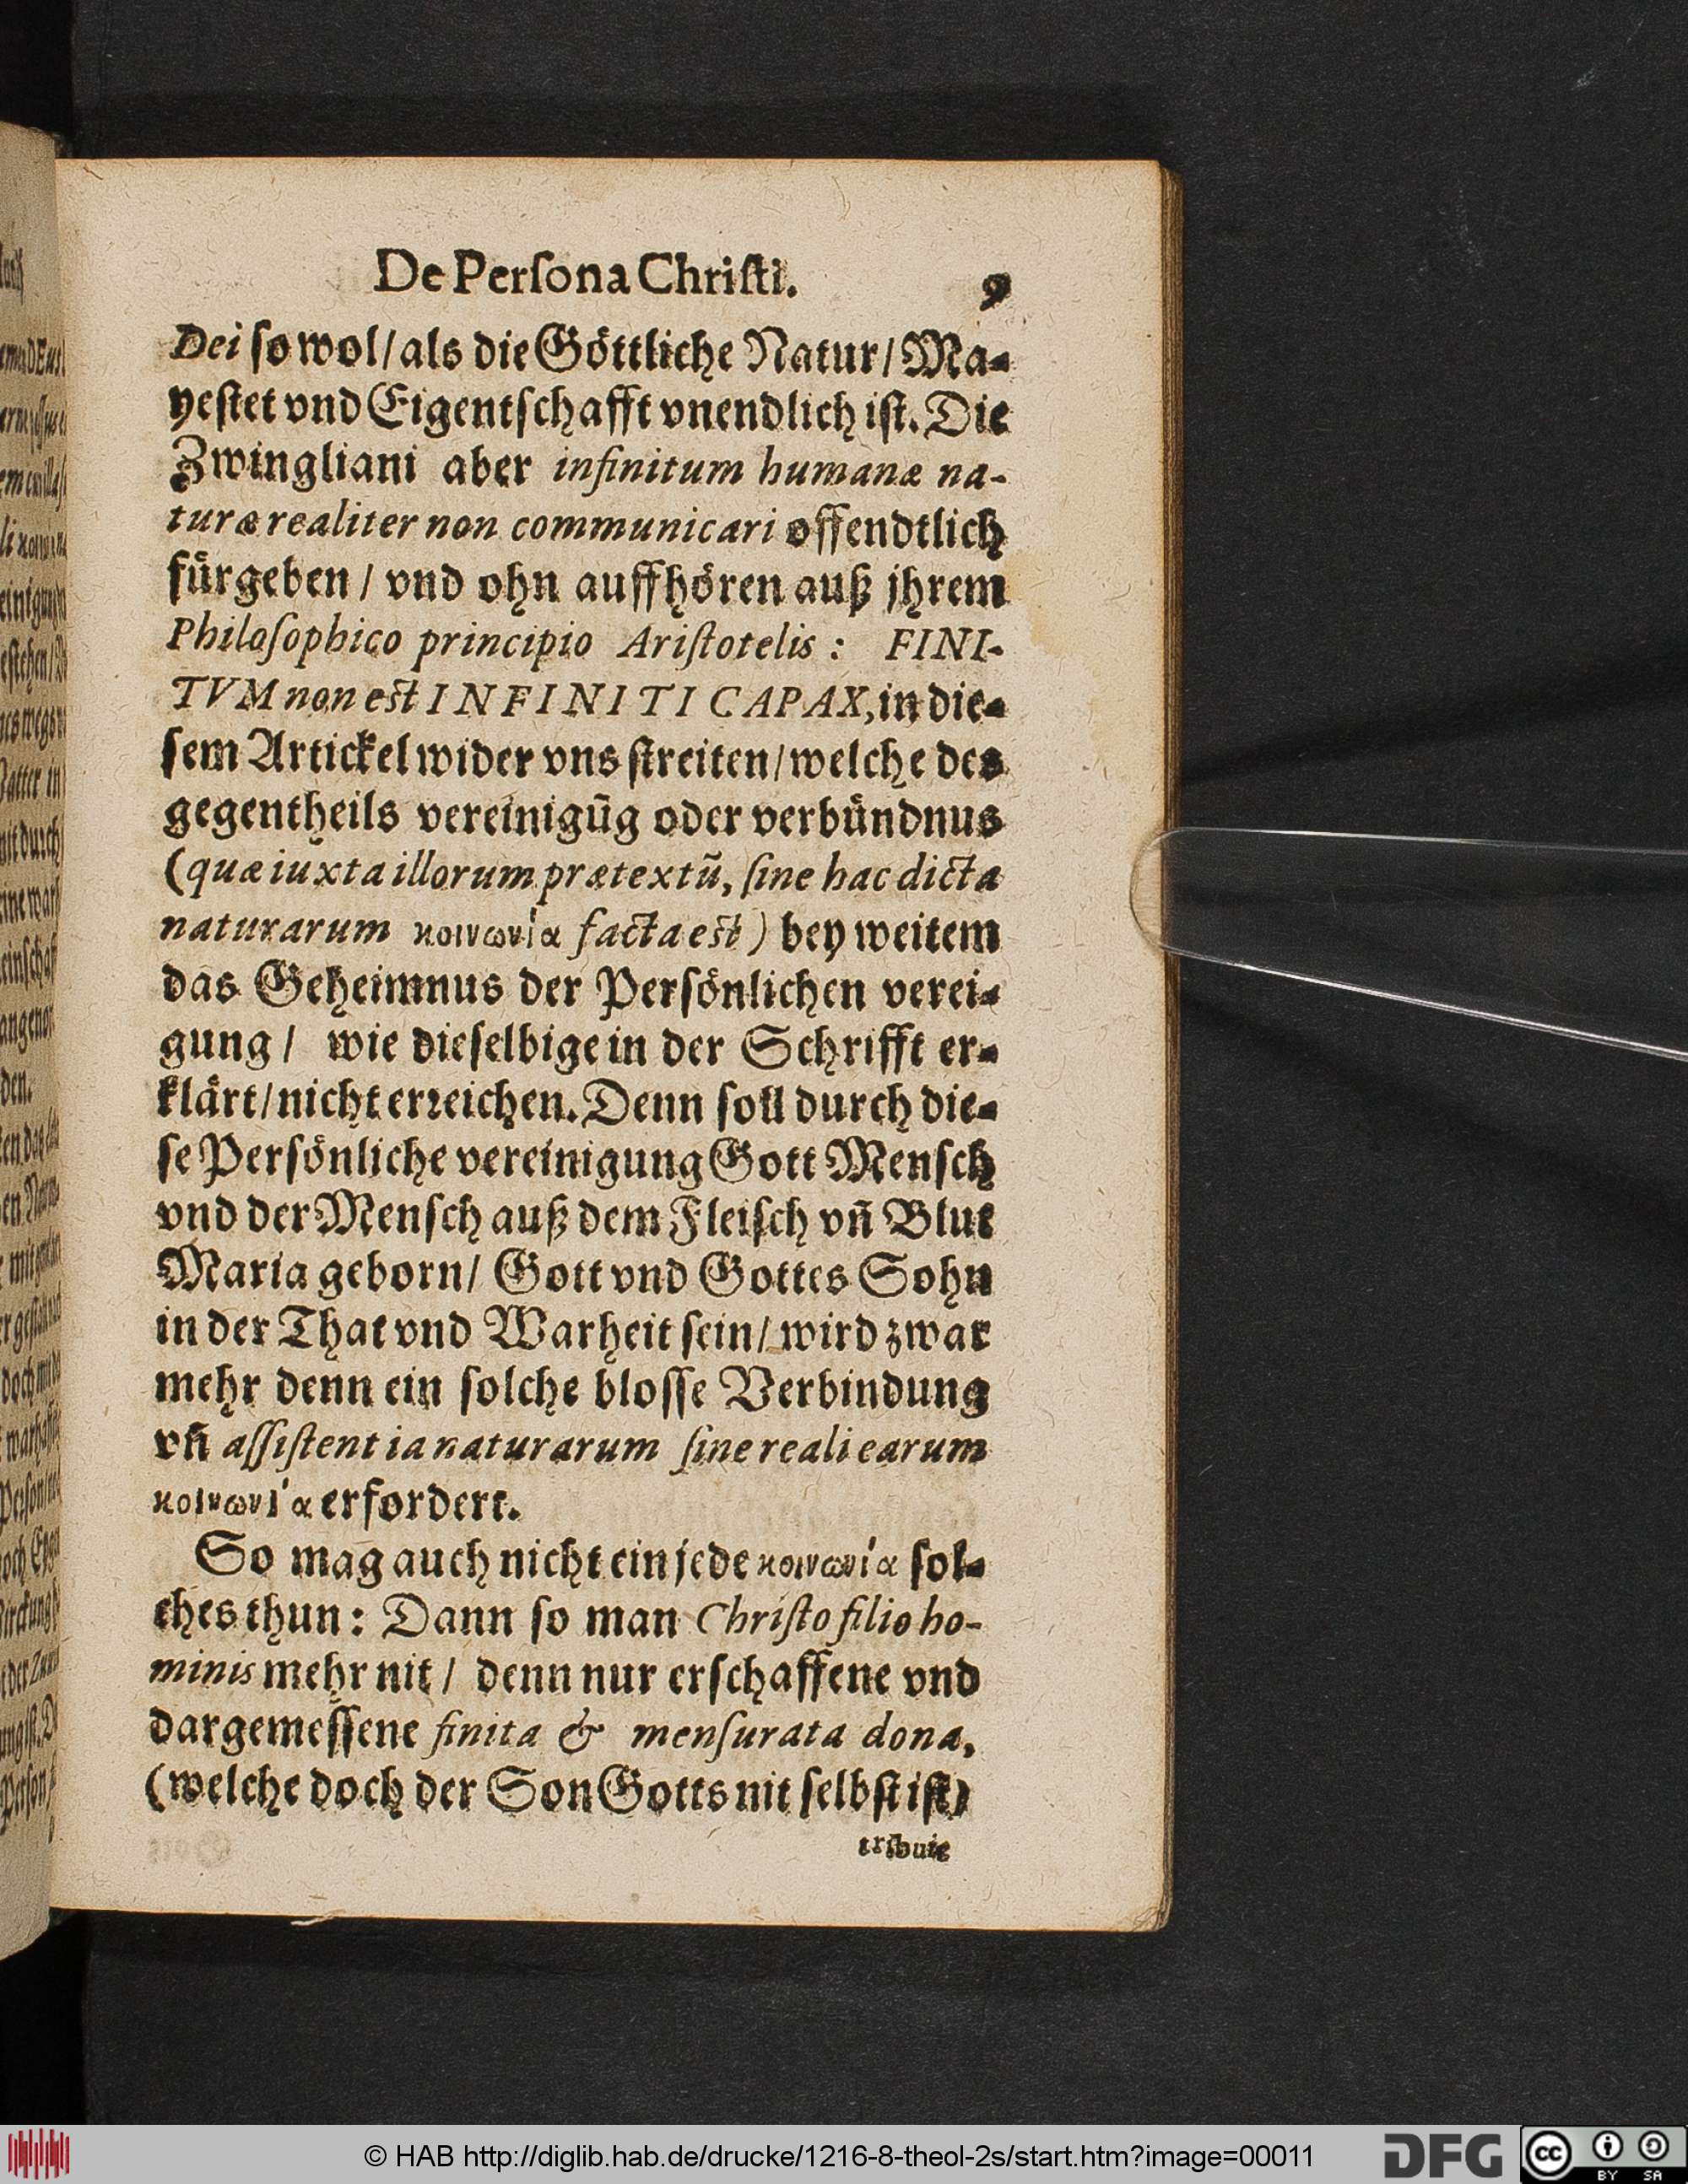 De Perſona Chriſti. 9
Dei ſo wol / als die Göttliche Natur / Ma-
yeſtet vnd Eigentſchafft vnendlich iſt. Die
Zwingliani aber infinitum humanæ na-
turæ realiter non communicari offendtlich
fürgeben / vnd ohn auffhören auß jhrem
Philoſophico principio Ariſtotelis : FINI-
TVM non eſt INFINITI CAPAX, in die-
ſem Artickel wider vns ſtreiten / welche des
gegentheils vereinigūg oder verbündnus
(quæ iuxta illorum prætextū, ſine hac dicta
naturarum κοινωνία facta eſt) bey weitem
das Geheimnus der Perſönlichen verei-
gung / wie dieſelbige in der Schrifft er-
klärt / nicht erꝛeichen. Denn ſoll durch die-
ſe Perſönliche vereinigung Gott Menſch
vnd der Menſch auß dem Fleiſch vn̄ Blut
Maria geborn / Gott vnd Gottes Sohn
in der That vnd Warheit ſein / wird zwar
mehr denn ein ſolche bloſſe Verbindung
vn̄ aſſiſtentia naturarum ſine reali earum
κοινωνία erfordert.
So mag auch nicht ein jede κοινωνία ſol-
ches thun : Dann ſo man Chriſto filio ho-
minis mehr nit / denn nur erſchaffene vnd
dargemeſſene finita & menſurata dona,
(welche doch der Son Gotts nit ſelbſt iſt)
© HAB http://diglib.hab.de/drucke/1216-8-theol-2s/start.htm?image=00011
DFG
cc
BY SA